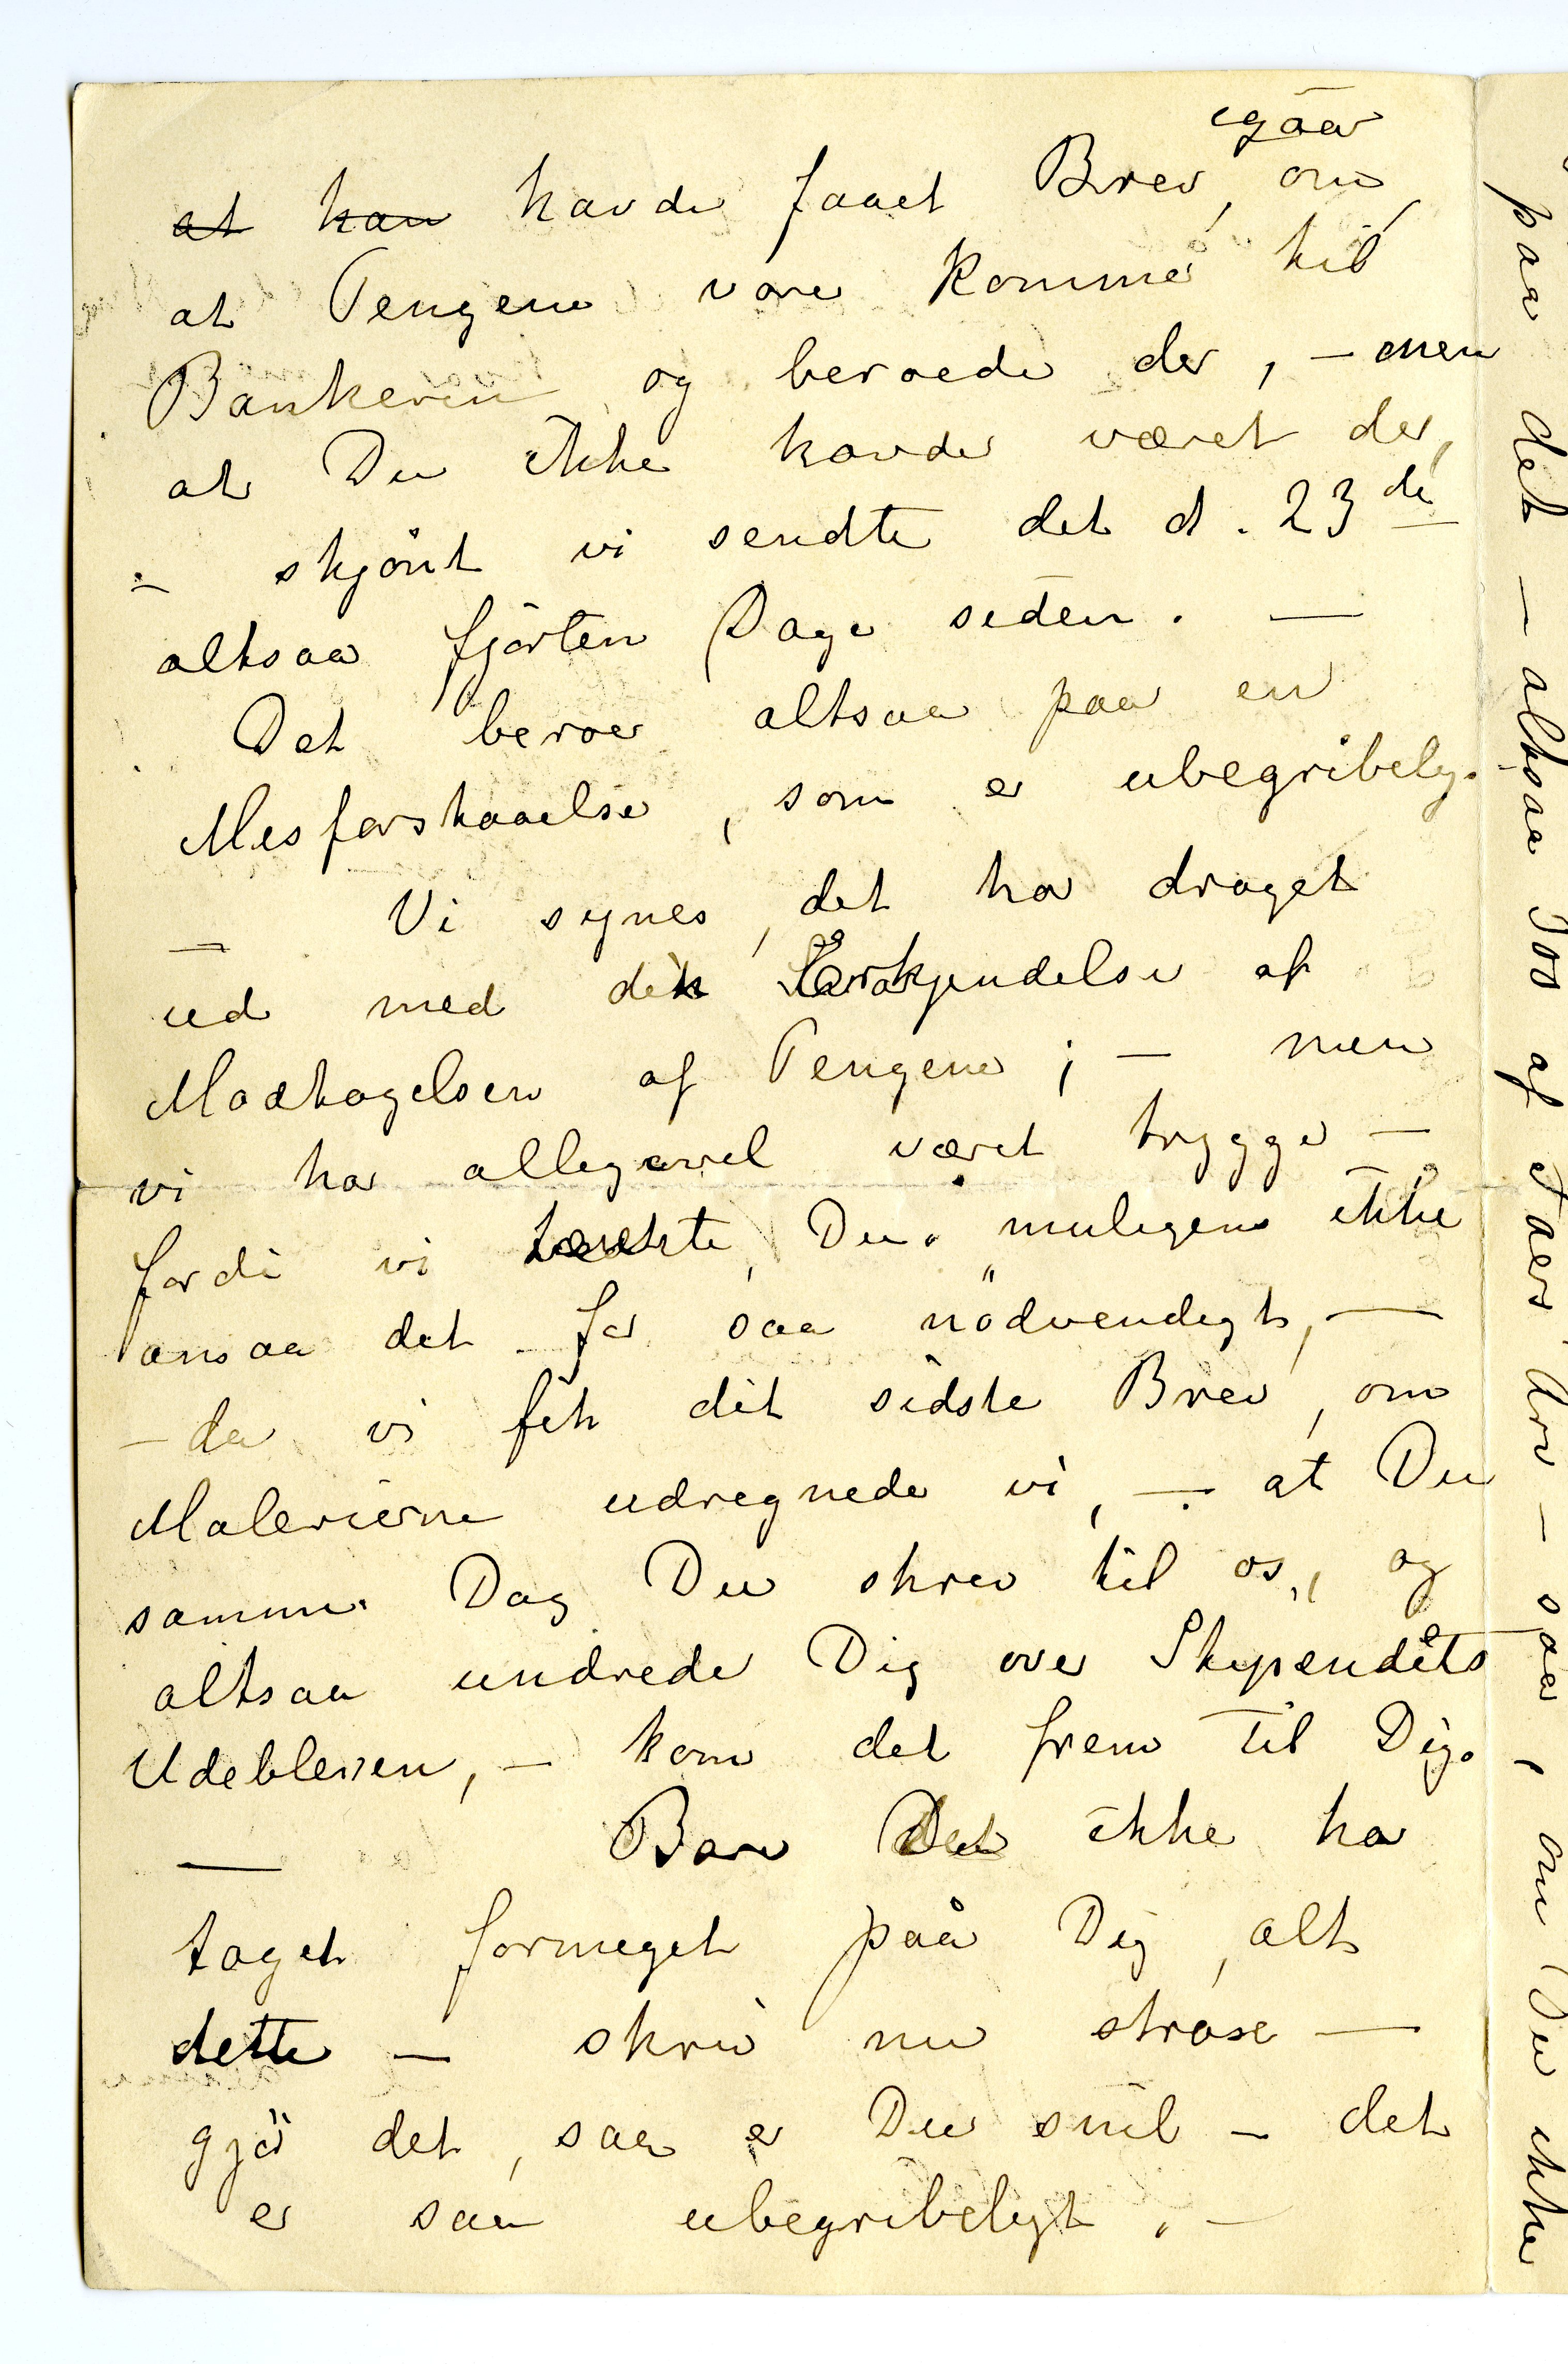 igaar
at han havde faaet Brev, om
at Pengene vare komne til
Bankeren og beroede der, – men
at Du ikke havde været der,
– skjönt vi sendte det d. 23de
altsaa fjorten Dage siden. —
Det beroer altsaa paa en
Misforstaaelse, som er ubegribelig.
— Vi synes, det har draget
ud med din Erkjendelse af
Modtagelsen af Pengene; — men
vi har alligevel været trygge —
fordi vi tænkte, Du muligens ikke
ansaa det for saa nödvendigt, —
– da vi fik dit sidste Brev, om
Malerierne udregnede vi, – at Du
samme Dag Du skrev til os, og
altsaa undrede Dig over Stipendiets
Udebliven, – kom det frem til Dig.
— Bare Det ikke har
taget formeget paa Dig, alt
dette – skriv nu strax —
gjör det, saa er Du snil – det
er saa ubegribeligt. –
paa det – altsaa 300 af Faers Arv – saa, om Du ikke